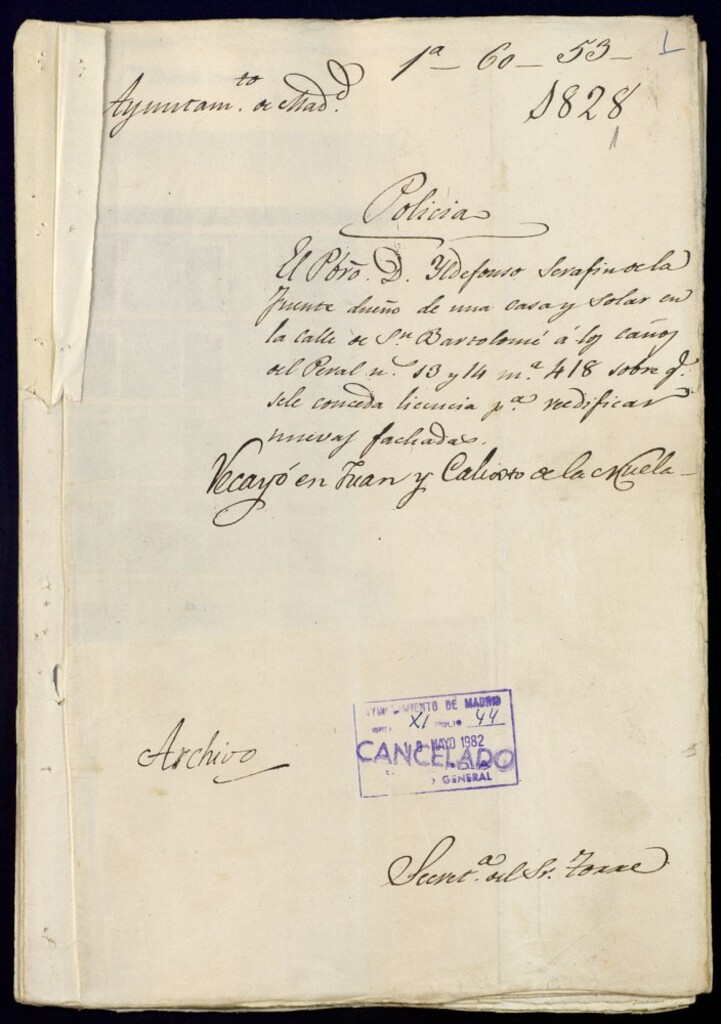 1ª - 60 - 53 -
1
Ayuntam.to de Mad.d
1828
1
Policia
El Pbro. D. Yldefonso Serafin de la
Fuente dueño de una casa y solar en
la calle de Sn Bartolomé á los caños
del Peral n.º 13 y 14 m.ª 418 sobre q.e
se le conceda licencia p.ª reedificar
nuevas fachadas.
Recayó en Juan y Calixto de la Muela -
AYUNTAMIENTO DE MADRID
XI 44
18 MAYO 1982
CANCELADO
GENERAL
Archivo
Secret.ª del Sr. Torre